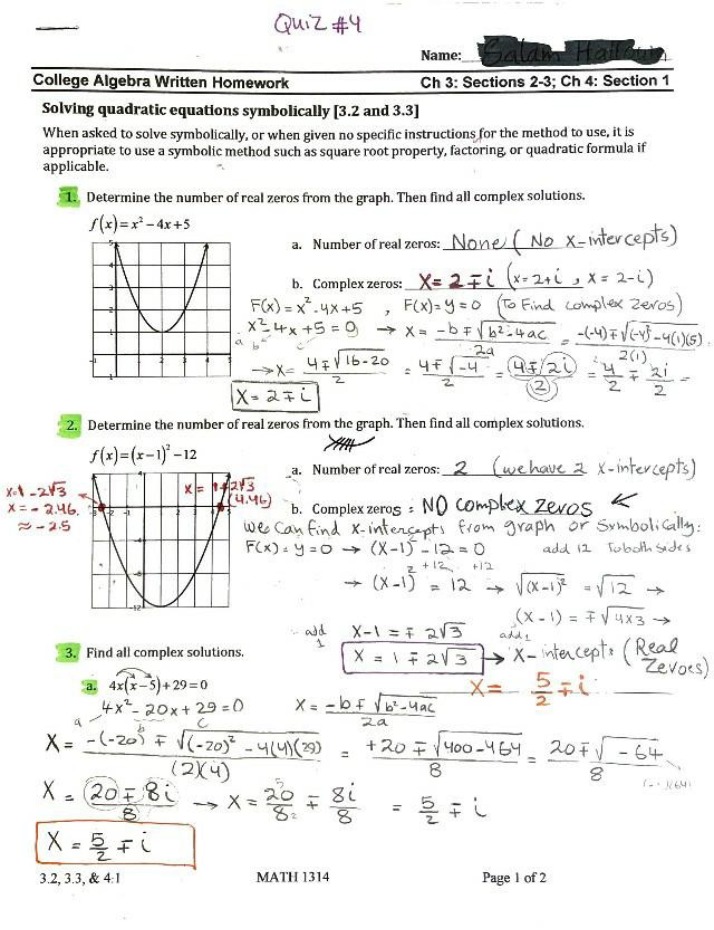 QUIZ #4
Name:
College Algebra Written Homework Ch 3: Sections 2-3; Ch 4: Section 1
Solving quadratic equations symbolically [3.2 and 3.3]
When asked to solve symbolically, or when given no specific instructions for the method to use, it is
appropriate to use a symbolic method such as square root property, factoring, or quadratic formula if
applicable.
1. Determine the number of real zeros from the graph. Then find all complex solutions.
f(x)=x²−4x+5
a. Number of real zeros: None ( No x-intercepts)
b. Complex zeros: X= 2 ∓ i (x=2+i , x = 2-i)
F(x) = x²-4x+5 , F(x)=y=0 (To Find complex zeros)
x²-4x+5=0 → x = -b∓√b²-4ac / 2a = -(-4)∓√(-4)²-4(1)(5) / 2(1)
a b c
→X= 4∓√16-20 / 2 = 4∓√-4 / 2 = 4∓2i / 2 = 4/2 ∓ 2i/2 =
X= 2∓i
2. Determine the number of real zeros from the graph. Then find all complex solutions.
f(x)=(x−1)²−12
a. Number of real zeros: 2 (we have 2 x-intercepts)
X=1-2√3
X=-2.46
≈-2.5
X= 1+2√3
(4.46)
b. Complex zeros: NO complex zeros ←
We Can find x-intercepts from graph or Symbolically:
F(x)=y=0 → (x-1)²-12=0 add 12 To both sides
+12 +12
→ (x-1)² = 12 → √(x-1)² = √12 →
(x-1) = ∓√4x3 →
add 1 X-1 = ∓ 2√3 add 1
X = 1 ∓ 2√3 → X-intercepts (Real Zeroes)
3. Find all complex solutions.
X= 5/2 ∓ i
a. 4x(x−5)+29=0
4x²-20x+29=0 X= -b∓√b²-4ac / 2a
a b c
X= -(-20) ∓ √(-20)²-4(4)(29) / (2)(4) = +20∓√400-464 / 8 = 20∓√-64 / 8
X = 20∓8i / 8 → X= 20/8 ∓ 8i/8 = 5/2 ∓ i
X = 5/2 ∓ i
3.2, 3.3, & 4.1 MATH 1314 Page 1 of 2